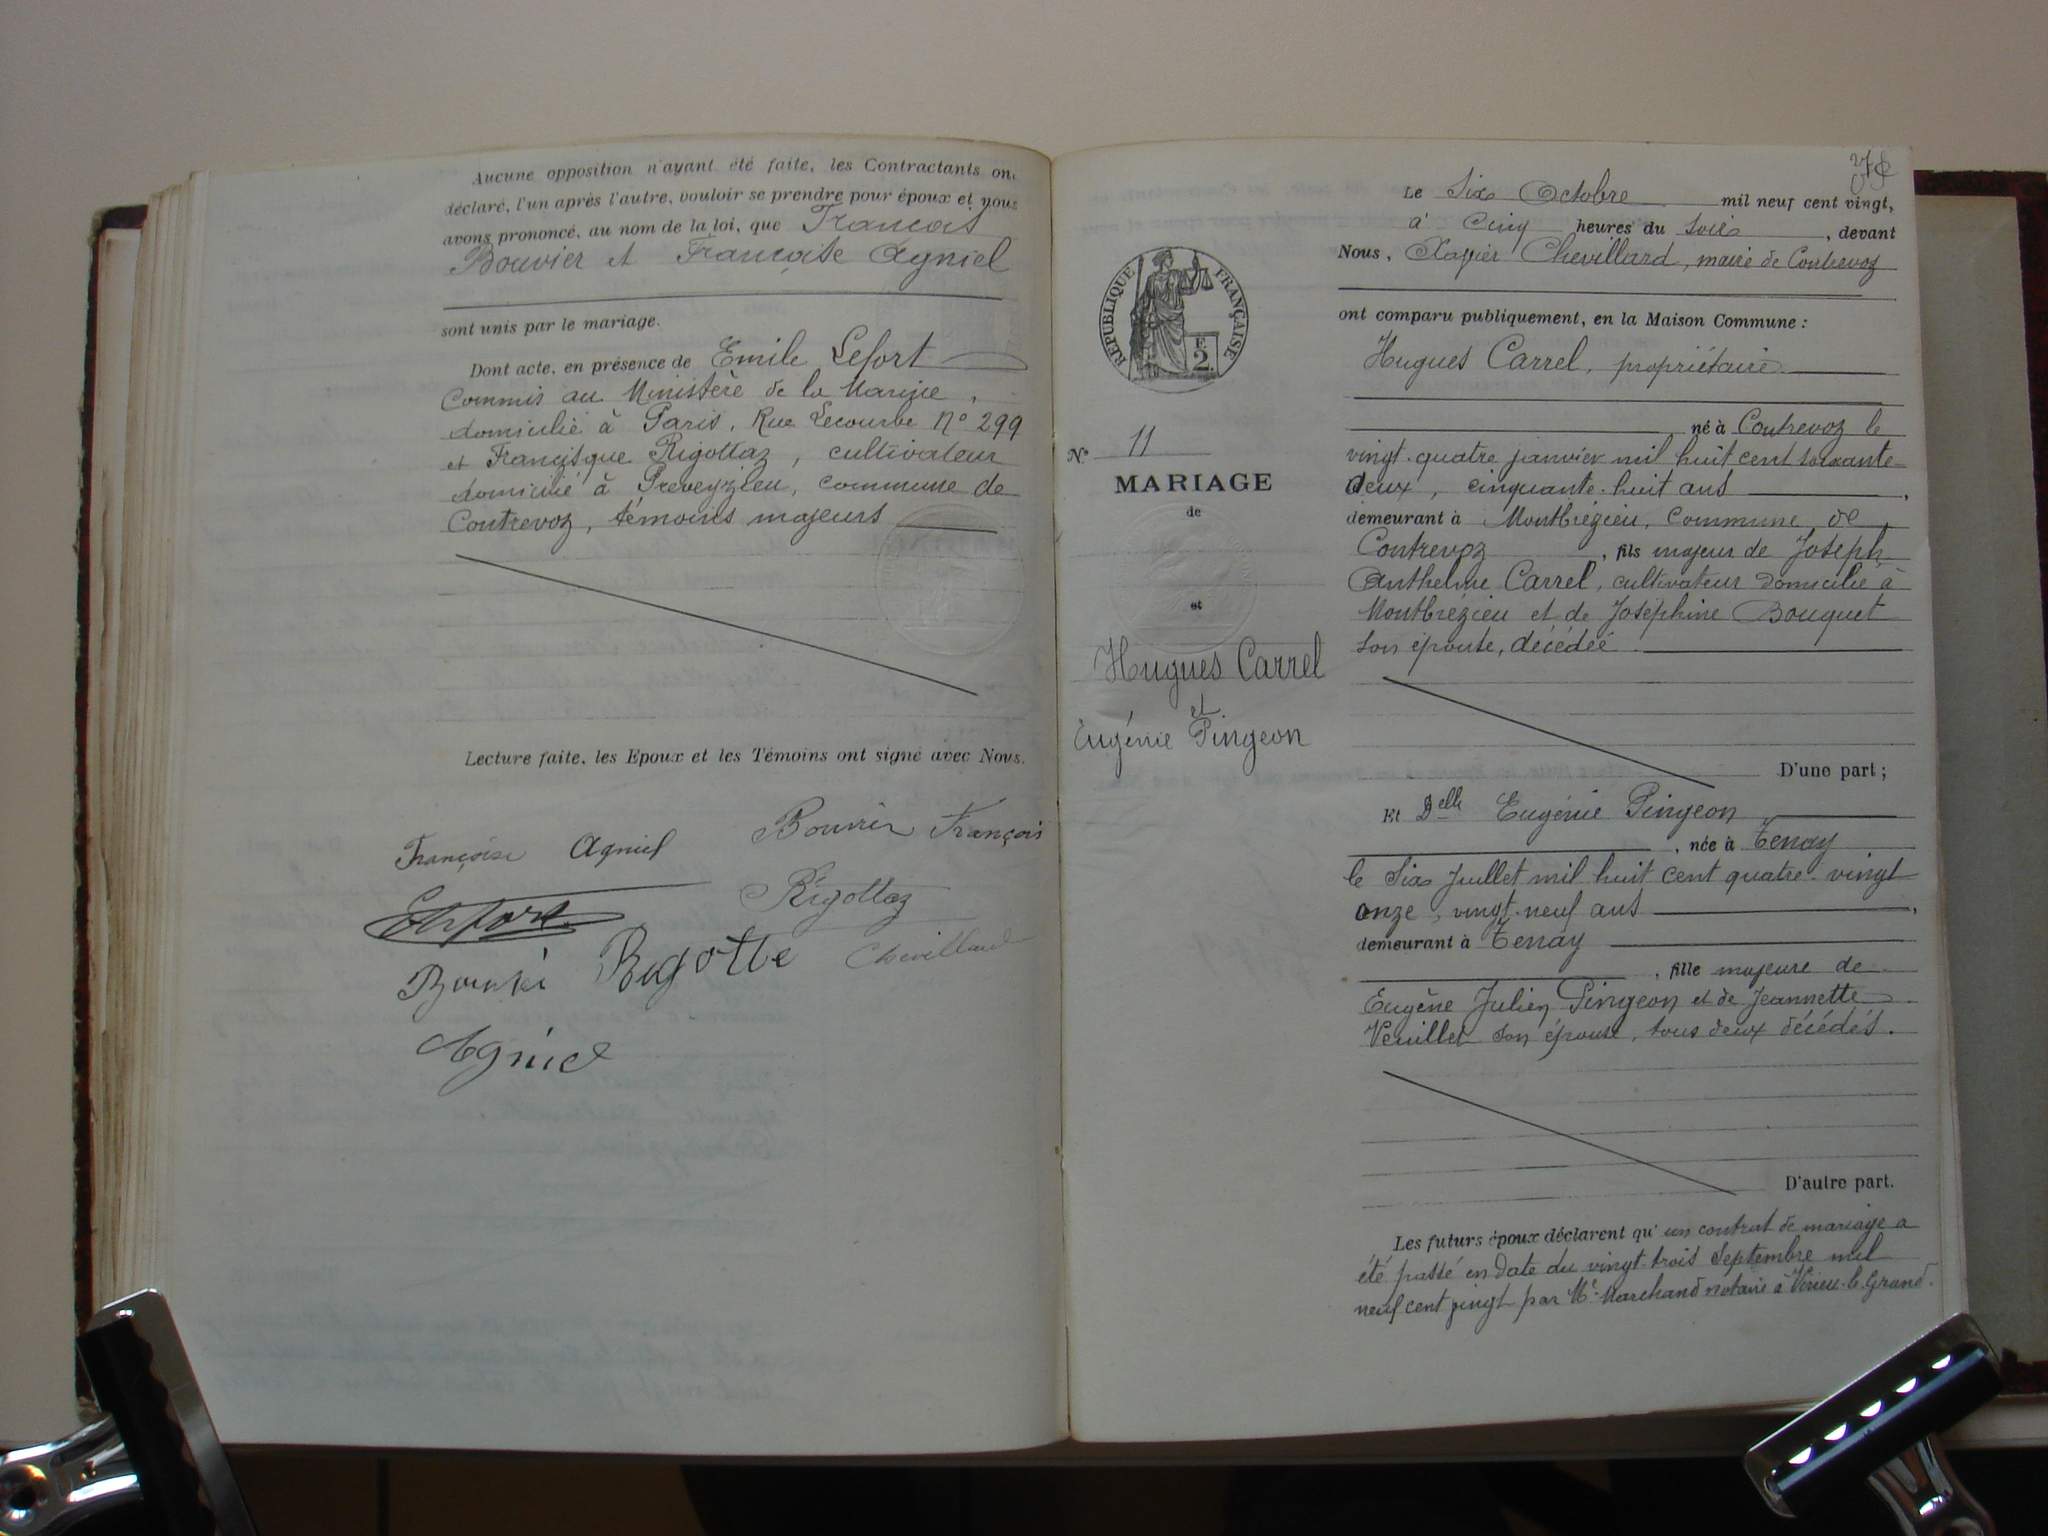 Aucune opposition n'ayant été faite, les Contractants ont
déclaré, l'un après l'autre, vouloir se prendre pour époux et nous
avons prononcé, au nom de la loi, que François
Bouvier et Françoise Agniel
sont unis par le mariage.
Dont acte, en présence de Emile Lefort
Commis au Ministère de la Marine,
domicilié à Paris, Rue Lecourbe N° 299
et Francisque Rigottaz, cultivateur
domicilié à Preveyzieu, commune de
Contrevoz, témoins majeurs
Lecture faite, les Epoux et les Témoins ont signé avec Nous.
Françoise Agniel Bouvier François
Rigottaz
Rigotte Chevillard
Agniel
Le Six Octobre mil neuf cent vingt,
à Cinq heures du Soir, devant
Nous, Xavier Chevillard, maire de Contrevoz
ont comparu publiquement, en la Maison Commune :
Hugues Carrel, propriétaire
né à Contrevoz le
vingt-quatre janvier mil huit cent soixante-
deux, cinquante-huit ans,
demeurant à Montbrézieu, commune de
Contrevoz, fils majeur de Joseph
Anthelme Carrel, cultivateur domicilié à
Montbrézieu et de Joséphine Bouquet
son épouse, décédée.
D'une part ;
Et Delle Eugénie Pingeon
, née à Tenay
le Six Juillet mil huit cent quatre-vingt
onze, vingt-neuf ans,
demeurant à Tenay
, fille majeure de
Eugène Julien Pingeon et de Jeannette
Veuillet son épouse, tous deux décédés.
D'autre part.
Les futurs époux déclarent qu'un contrat de mariage a
été passé en date du vingt-trois Septembre mil
neuf cent vingt par Me Marchand notaire à Virieu-le-Grand.
RÉPUBLIQUE FRANÇAISE
E
2
N° 11
MARIAGE
de
et
Hugues Carrel
et
Eugénie Pingeon